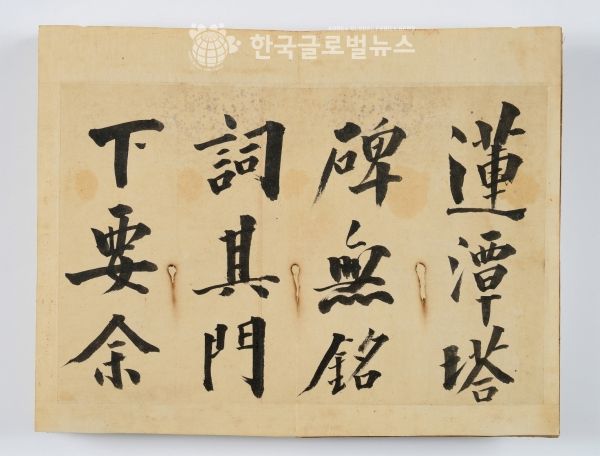 한국글로벌뉴스
蓮潭塔
碑無銘
詞其門
下要余